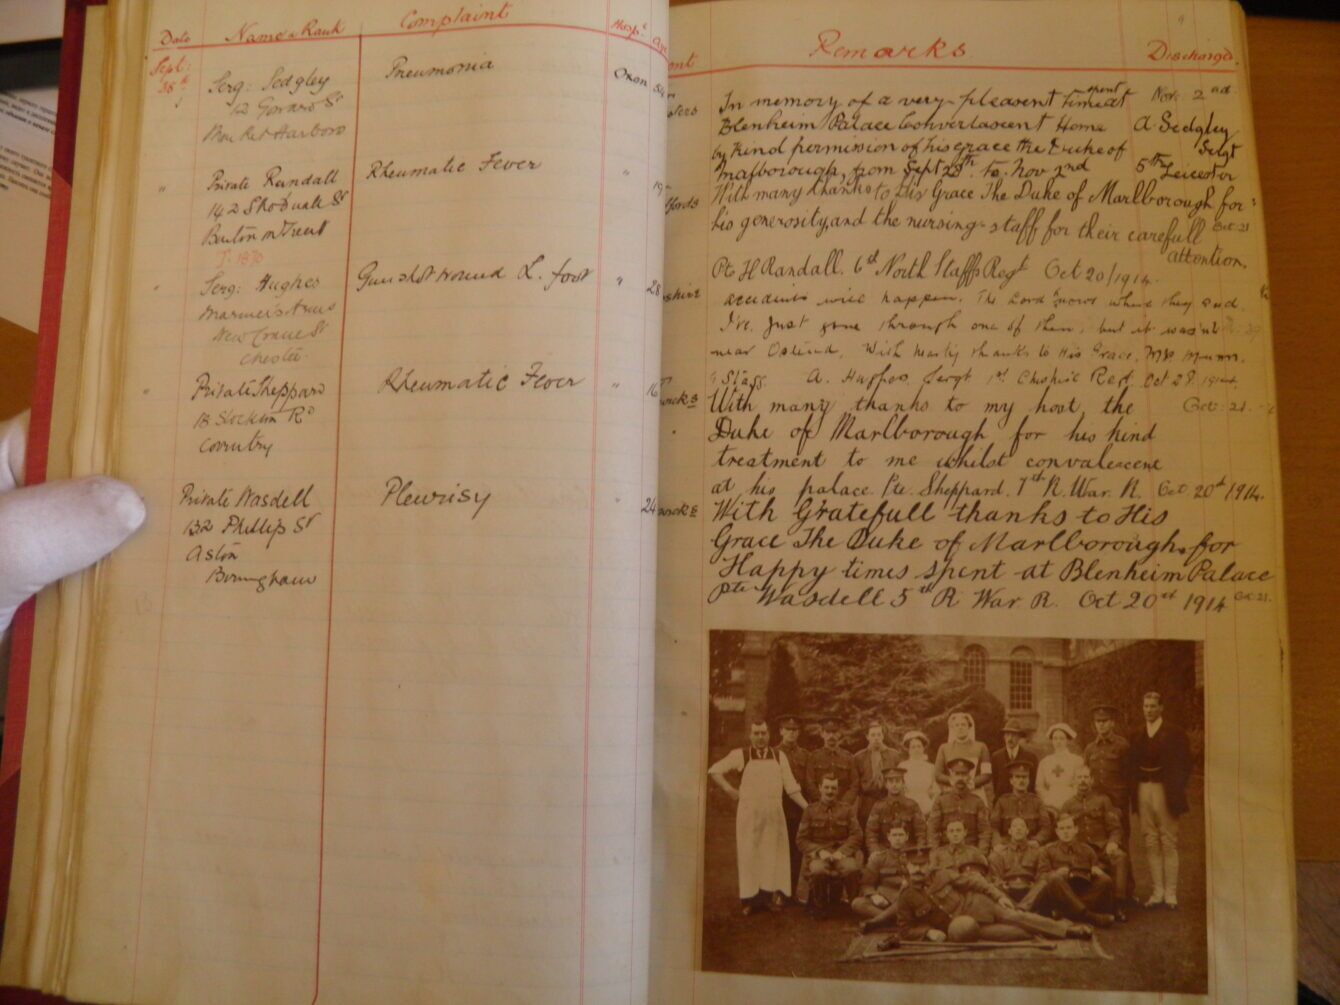 Date Name & Rank Complaint Hosp:
Sept: 28th Serg: Sedgley Pneumonia Oxon 54
12 St
Market Harboro
" Private Rundall Rheumatic Fever " 19
142 St
Burton on Trent
Serg: Hughes Gun shot wound L. foot " 28
Mariners Arms
New Crane St
Chester
" Private Sheppard Rheumatic Fever " 16
18 Stockton Rd
Coventry
Private Wasdell Pleurisy " 24
132 Phillip St
Aston
Birmingham
Remarks Discharged.
In memory of a very pleasent time spent at Nov: 2nd
Blenheim Palace Converlascent Home A Sedgley
by Kind permission of his grace the Duke of Sergt
Marlborough, from Sept 28th to Nov 2nd 5th Leicester
With many thanks to His Grace The Duke of Marlborough for
his generosity, and the nursing-staff for their carefull Oct 21
attention.
Pte H Randall. 6th North Staffs Regt Oct 20/1914.
accidents will happen. The Lord knows where they end.
I've just gone through one of them, but it wasn't
near Ostend, With hearty thanks to His Grace,
" Staff A. Hughes Sergt 1st Cheshire Oct 28. 1914.
With many thanks to my host the Oct: 21
Duke of Marlborough for his kind
treatment to me whilst convalescene
at his palace. Pte. Sheppard. 7th R. War. R. Oct 20th 1914.
With Gratefull thanks to His
Grace The Duke of Marlborough. for
Happy times spent at Blenheim Palace
Pte Wasdell 5th R War. R. Oct 20th 1914 Oct 21.